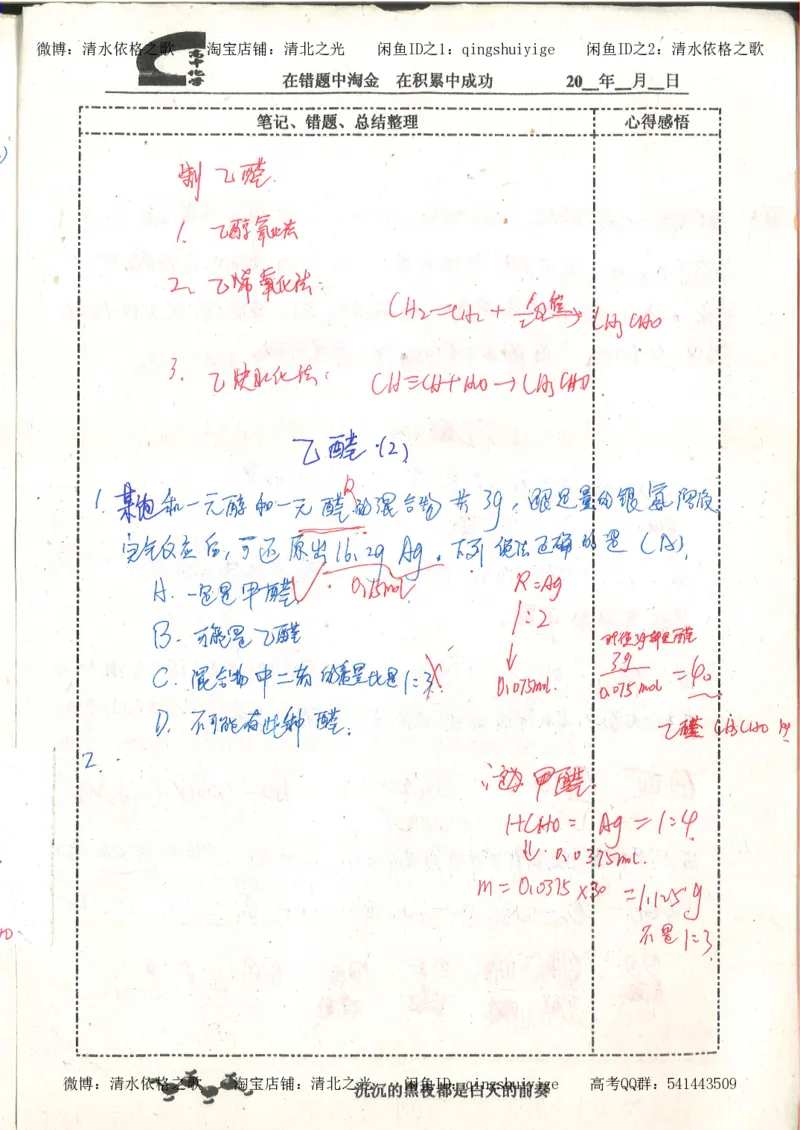 微博：清水依格之歌 淘宝店铺：清北之光 闲鱼ID之1：qingshuiyige 闲鱼ID之2：清水依格之歌
在错题中淘金 在积累中成功 20__年__月__日
笔记、错题、总结整理 心得感悟
制乙醛.
1. 乙醇氧化法
2. 乙烯氧化法：
CH2=CH2 + CH3CHO
3. 乙炔水化法：
CH≡CH+H2O→CH3CHO
乙醛(2)
1. 某饱和一元醇和一元醛的混合物共3g，跟足量的银氨溶液
R
完全反应后，可还原出16.2g Ag，下列说法正确的是（A）.
A. 一定是甲醛
0.15mol
R=Ag
1:2
B. 可能是乙醛
3g
0.075mol
=40
C. 混合物中二者的质量比是1:3
0.075mol.
乙醛 CH3CHO
D. 不可能有此种醛.
2.
∴这为甲醛.
HCHO = Ag = 1:4
0.0375mol.
m = 0.0375×30 = 1.125g
不是1:3
微博：清水依格之歌 淘宝店铺：清北之光 闲鱼ID：qingshuiyige 高考QQ群：541443509
沉沉的黑夜都是白天的前奏